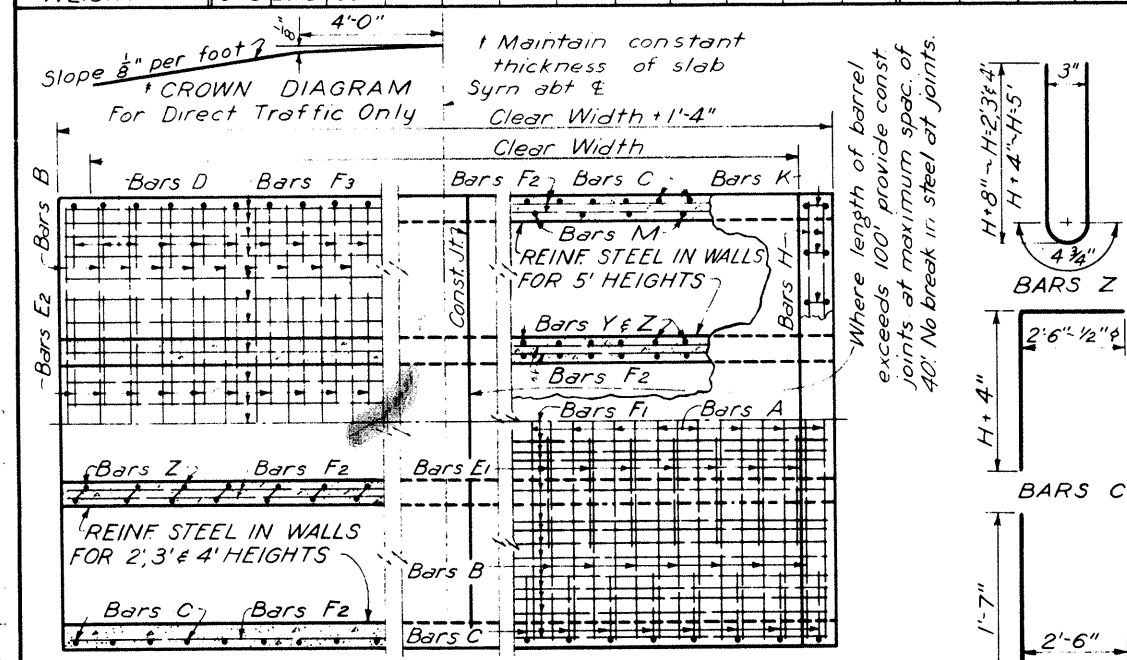 4'-0"
Slope 1/8" per foot
* CROWN DIAGRAM
For Direct Traffic Only
† Maintain constant
thickness of slab
Sym abt ℄
Clear Width + 1'-4"
Clear Width
Bars B
Bars D
Bars F3
Bars F2
Bars C
Bars K
Bars M
REINF STEEL IN WALLS
FOR 5' HEIGHTS
Const. Jt.
Bars H
Bars E2
Bars Y & Z
Bars F2
Bars F1
Bars A
Bars Z
Bars F2
Bars E1
REINF. STEEL IN WALLS
FOR 2', 3' & 4' HEIGHTS
Bars B
Bars C
Bars F2
Bars C
Where length of barrel
exceeds 100' provide const.
joints at maximum spac. of
40'. No break in steel at joints.
3"
H+8"~H=2',3'&4'
H+4"~H=5'
4 3/4"
BARS Z
2'-6"~1/2"φ
H+4"
BARS C
1'-7"
2'-6"